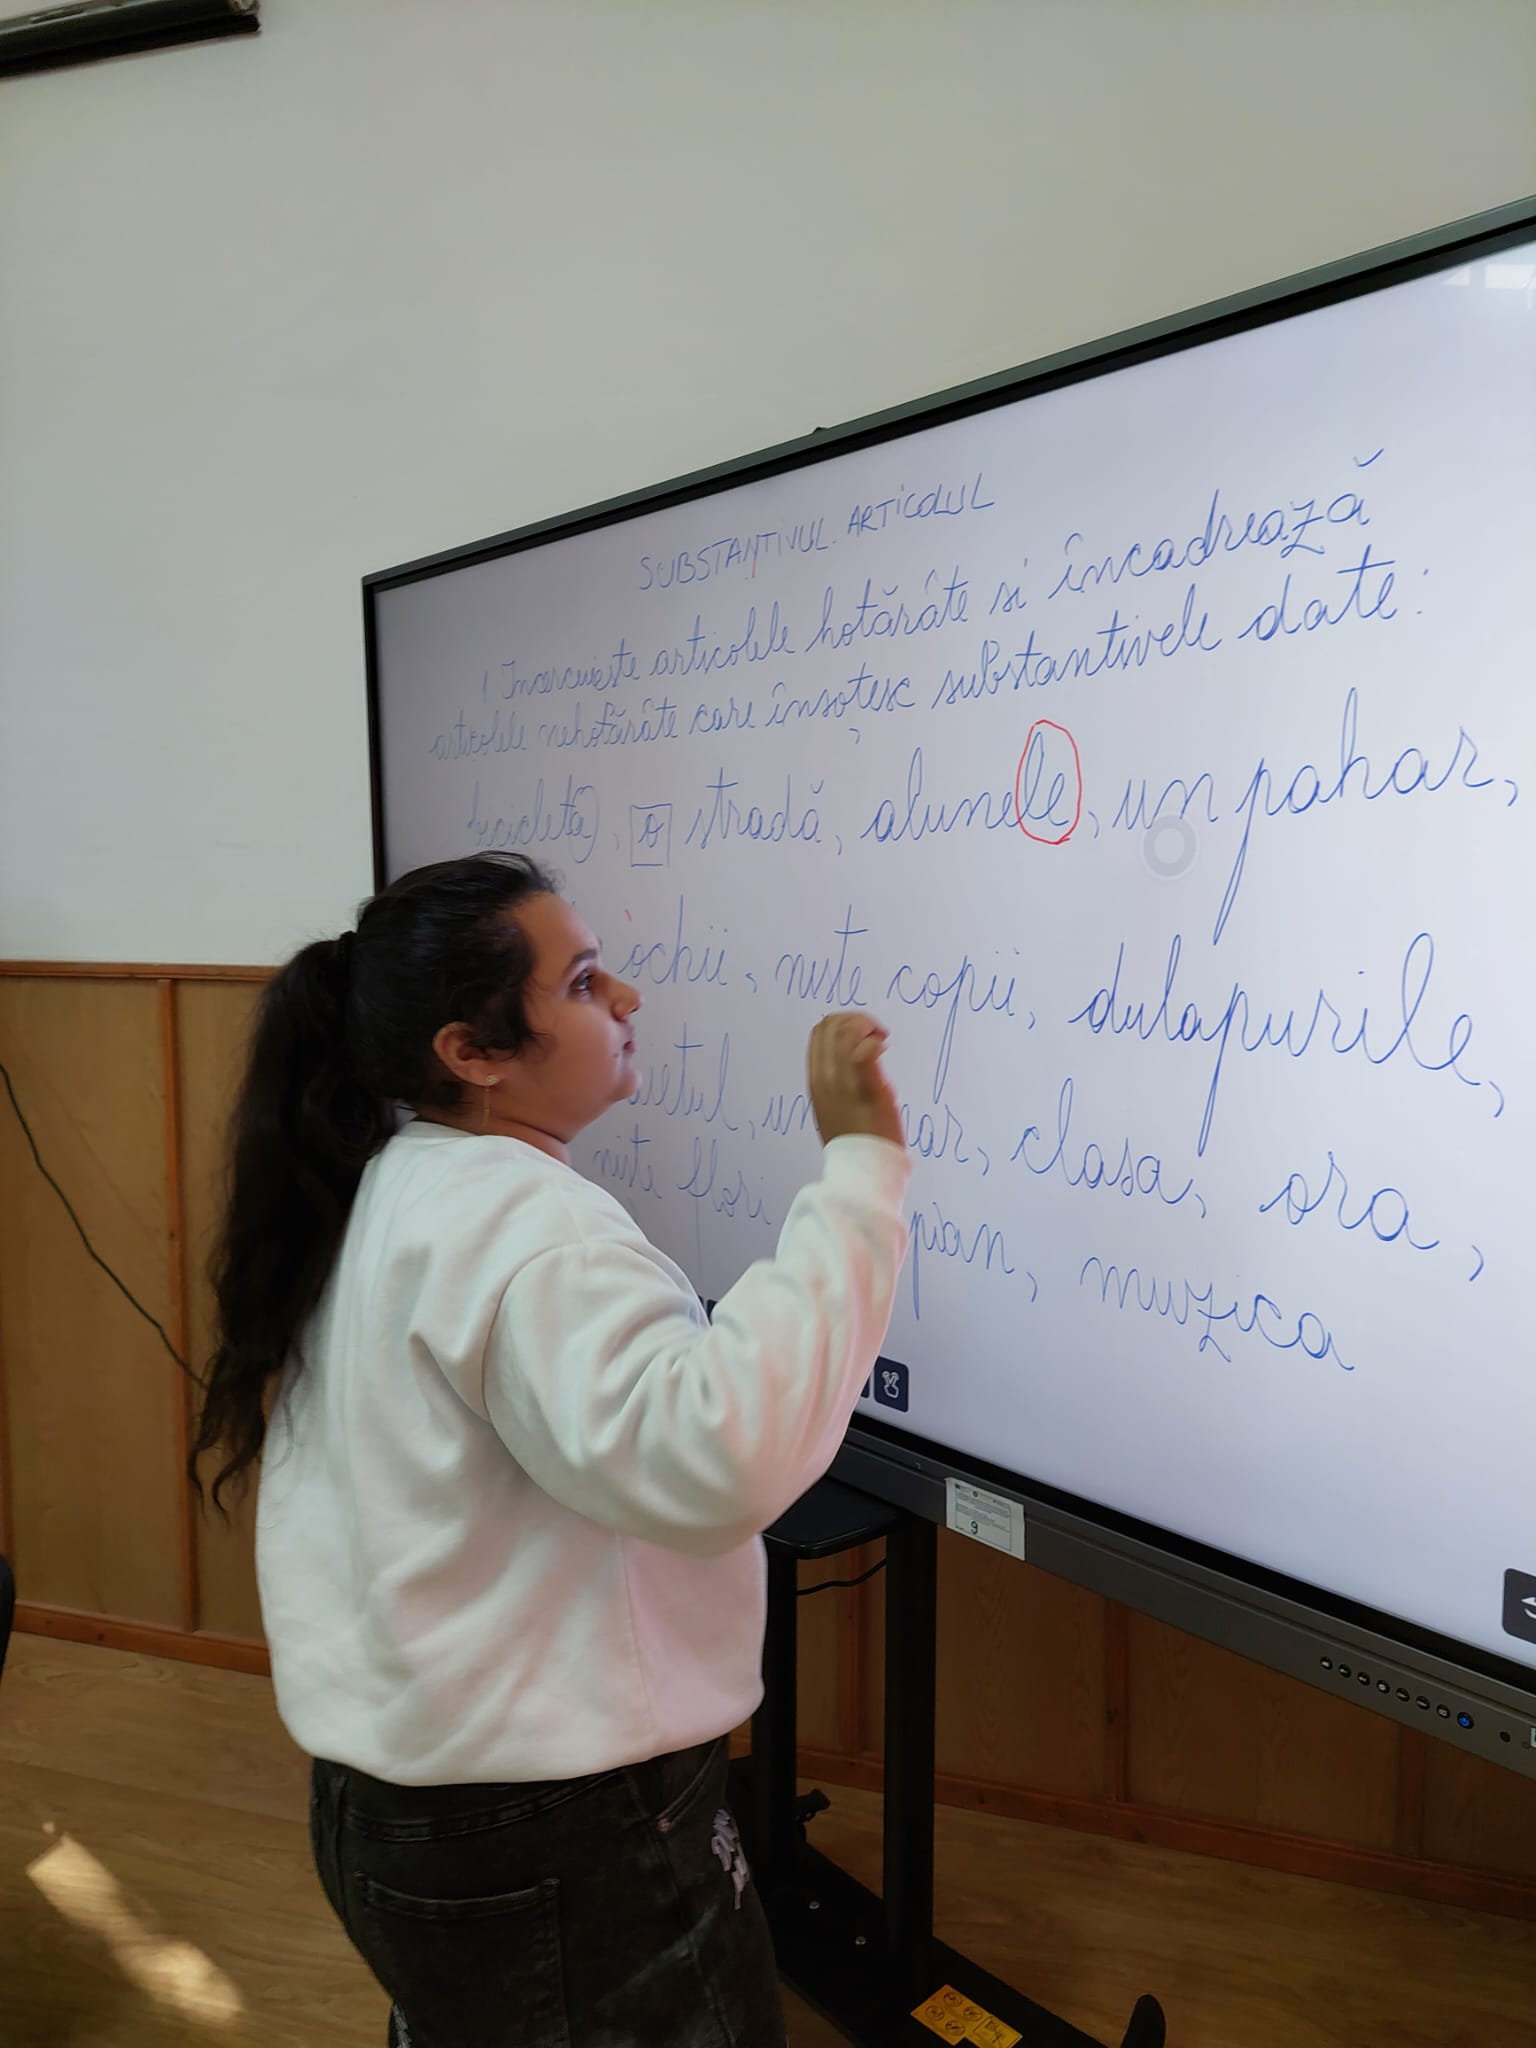 SUBSTANTIVUL. ARTICOLUL
1 Incercuiește articolele hotărâte si încadrează
articolele nehotărâte care însoțesc substantivele date:
bicicleta, o stradă, alunele, un pahar,
ochii, niste copii, dulapurile,
un clasa, ora,
niste flori pian, muzica
9